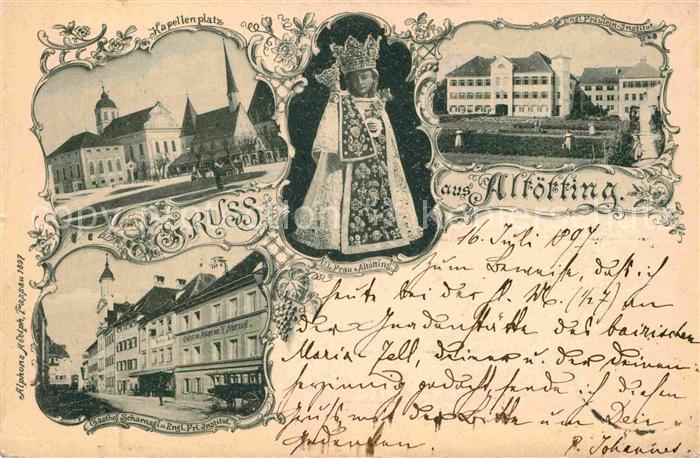 Kapellenplatz
Engl. Fräulein-Institut
GRUSS
aus Altötting.
U. l. Frau v. Altötting
Gasthof Scharnagl u. Engl. Frl. Institut.
Alphons Adolph, Passau 1897
16. Juli 1897
Zum Beweise, daß ich
heute bei der hl. M. (½7) an
der Gnadenstätte des bairischen
Maria-Zell, deiner u. der Deinen
herzinnig gedacht, sende ich diesen
Gruß mit der Bitte um Dein
Gedenken.
P. Johannes.